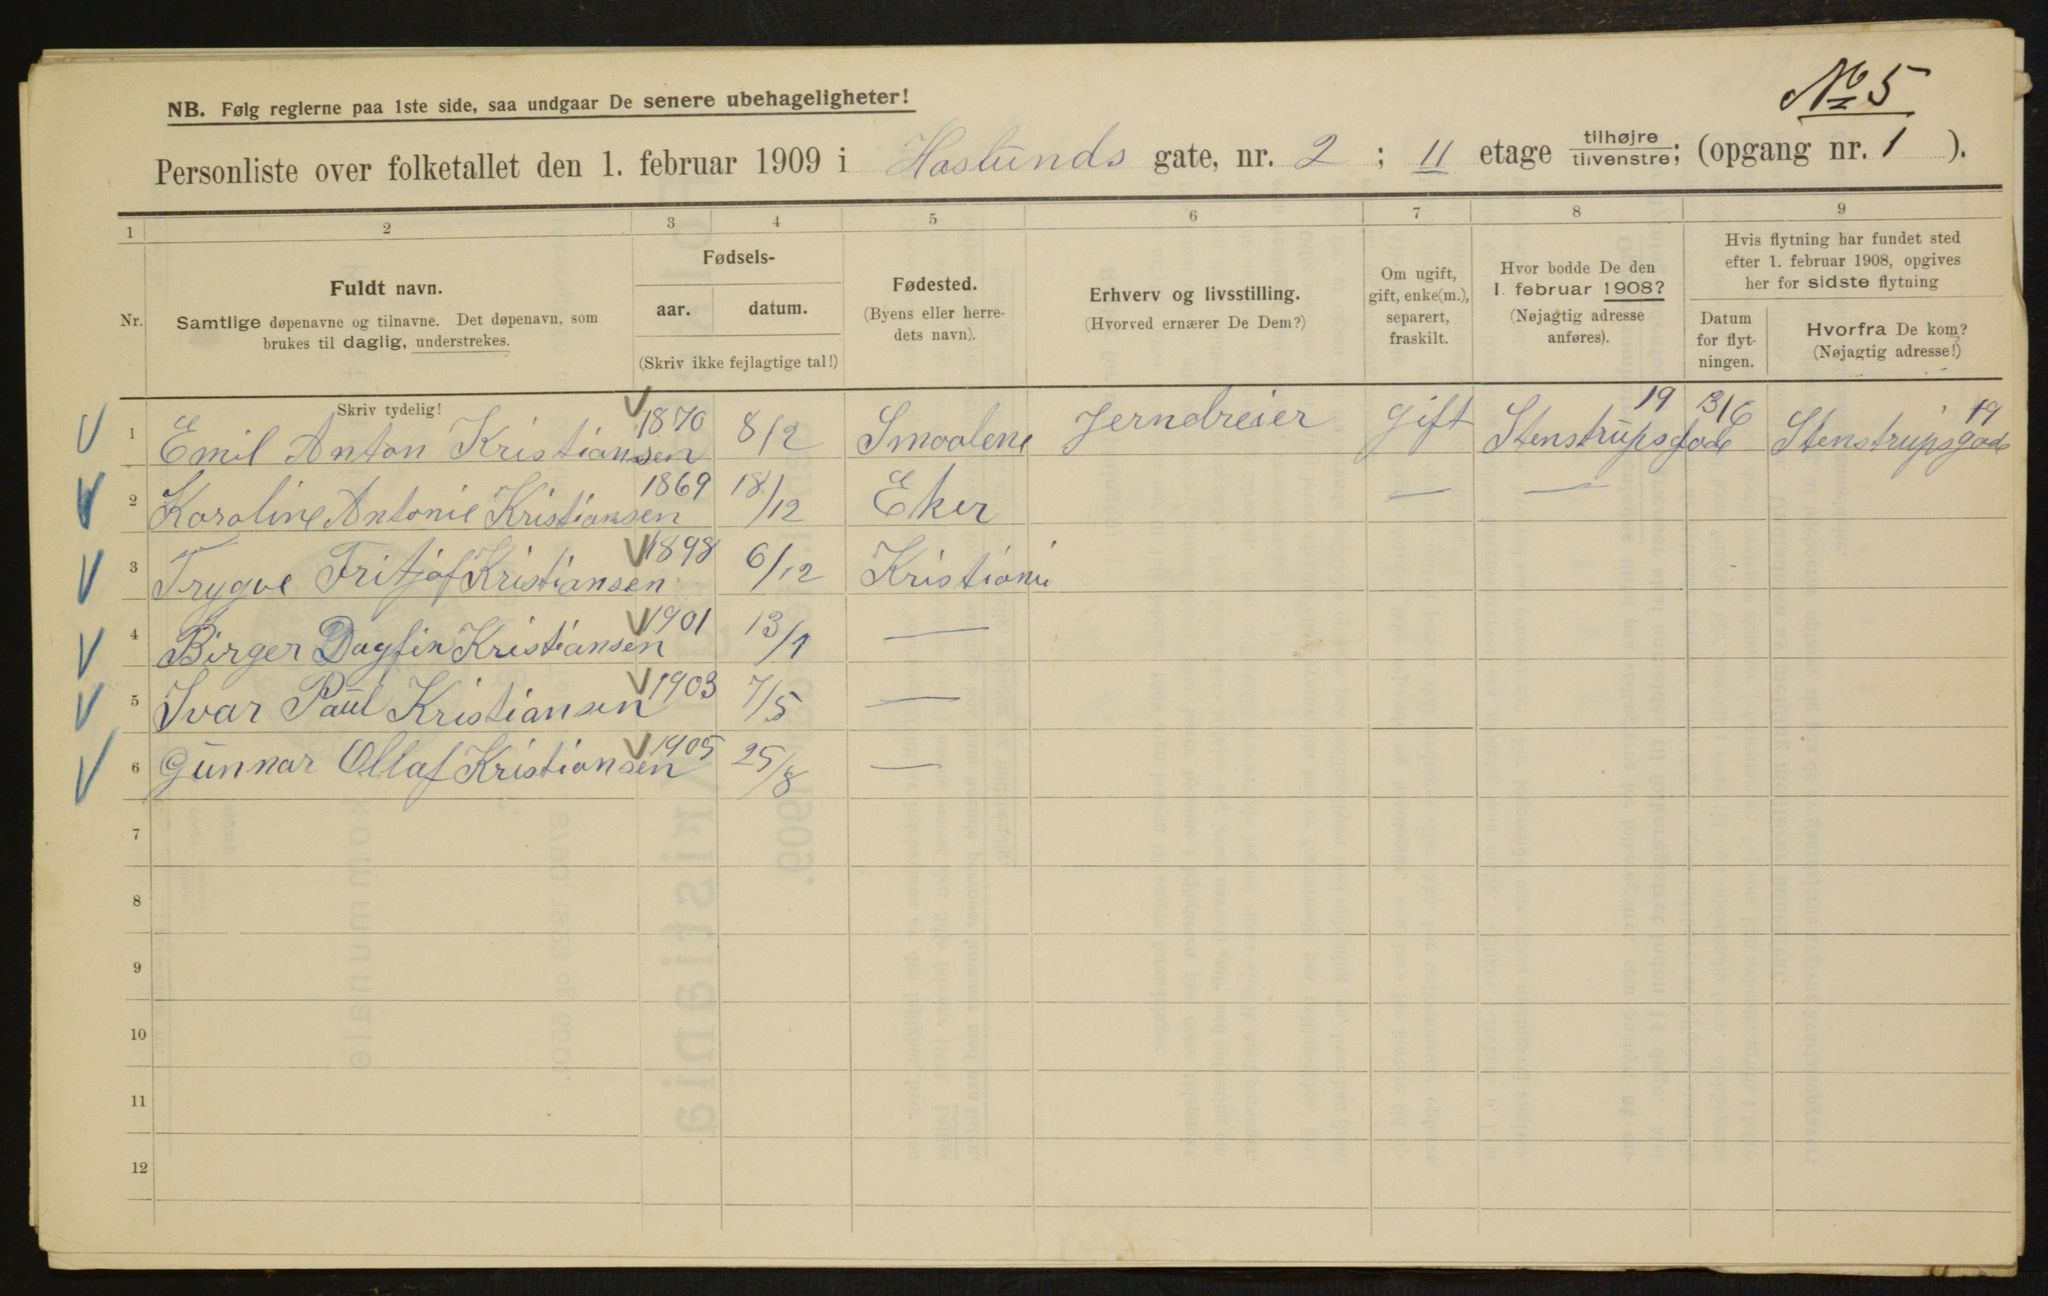 No 5
NB. Følg reglerne paa 1ste side, saa undgaar De senere ubehageligheter!
Personliste over folketallet den 1. februar 1909 i Haslunds gate, nr. 2 ; II etage tilhøjre / tilvenstre; (opgang nr. 1 ).
1 2 3 4 5 6 7 8 9
Nr.
Fuldt navn.
Samtlige døpenavne og tilnavne. Det døpenavn, som
brukes til daglig, understrekes.
Fødsels-
aar. datum.
(Skriv ikke fejlagtige tal!)
Fødested.
(Byens eller herre-
dets navn).
Erhverv og livsstilling.
(Hvorved ernærer De Dem?)
Om ugift,
gift, enke(m.),
separert,
fraskilt.
Hvor bodde De den
1. februar 1908?
(Nøjagtig adresse
anføres).
Hvis flytning har fundet sted
efter 1. februar 1908, opgives
her for sidste flytning
Datum
for flyt-
ningen.
Hvorfra De kom?
(Nøjagtig adresse!)
Skriv tydelig!
1 Emil Anton Kristiansen 1870 8/2 Smaalene Jerndreier gift Stenstrupsgade 19 Stenstrupsgade 19
2 Karoline Antonie Kristiansen 1869 18/12 Eker — —
3 Trygve Fritjof Kristiansen 1898 6/12 Kristiani
4 Birger Dagfin Kristiansen 1901 13/1 —
5 Ivar Paul Kristiansen 1903 7/5 —
6 Gunnar Ollaf Kristiansen 1905 25/8 —
7
8
9
10
11
12